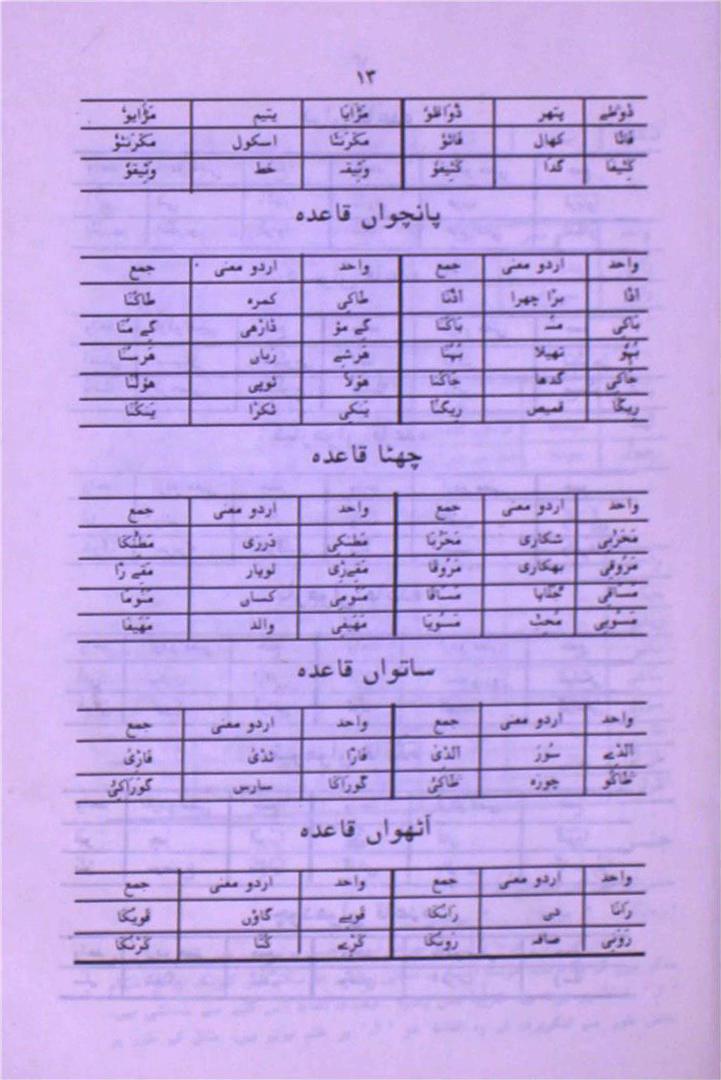 ۱۳
ڈوٗطے پتھر ڈواطوْ مَڑایا یتیم مَڑایوٗ
فَاٹا کھال فَاٹوْ مَکَرَنٹا اسکول مَکَرَنٹوْ
کَثِیفَا گدا کَثِیفوْ وَثِیقہ خط وَثِیقوْ
پانچواں قاعدہ
واحد اردو معنی جمع واحد اردو معنی جمع
اڈا بڑا چھرا اڈنا طاکِی کمرہ طاکْنا
بَاکِی منہ بَاکْنا گے موْ ڈاڑھی گے مْنا
بُہوْ تھیلا بُہْنا ھَرشے زباں ھَرسْنا
جَاکِی گدھا جَاکْنا ھوْلا ٹوپی ھوْلْنا
رِیگا قمیص رِیگنا یَنکِی ٹکڑا یَنکْنا
چھٹا قاعدہ
واحد اردو معنی جمع واحد اردو معنی جمع
مَحَرْبِی شکاری مَحَرْبَا مَطِنکِی درزی مَطِنْکَا
مَرُوقِی بھکاری مَرُوقَا مَقےرِی لوہار مَقے رَا
مَسَاقِی جُلاہا مَسَاقَا مَنُومِی کساں مَنُومَا
مَسوْیِی مُحِبْ مَسوْیَا مَھَیفِی والد مَھَیفَا
ساتواں قاعدہ
واحد اردو معنی جمع واحد اردو معنی جمع
اَلدْے سوْر اَلدِیْ فَارَا ٹڈی فَارِیْ
طَاکُو چوزہ طَاکِیْ گوْرَاکَا سارس گوْرَاکِیْ
آٹھواں قاعدہ
واحد اردو معنی جمع واحد اردو معنی جمع
رَانَا دن رَانکَا قوْیے گاؤں قوْیکَا
رَوْنِی صافہ رَوْنکَا کَرْے کُتّا کَرْنکَا